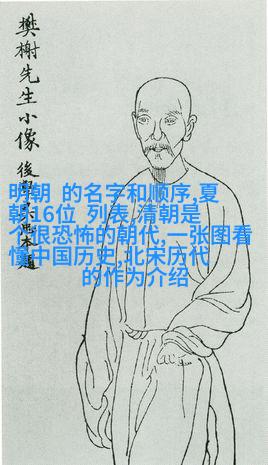 樊榭先生小像
後學本題
明朝 的名字和顺序,夏
朝16位 列表,清朝是
个很恐怖的朝代,一张图看
懂中国历史,北宋历代
的作为介绍